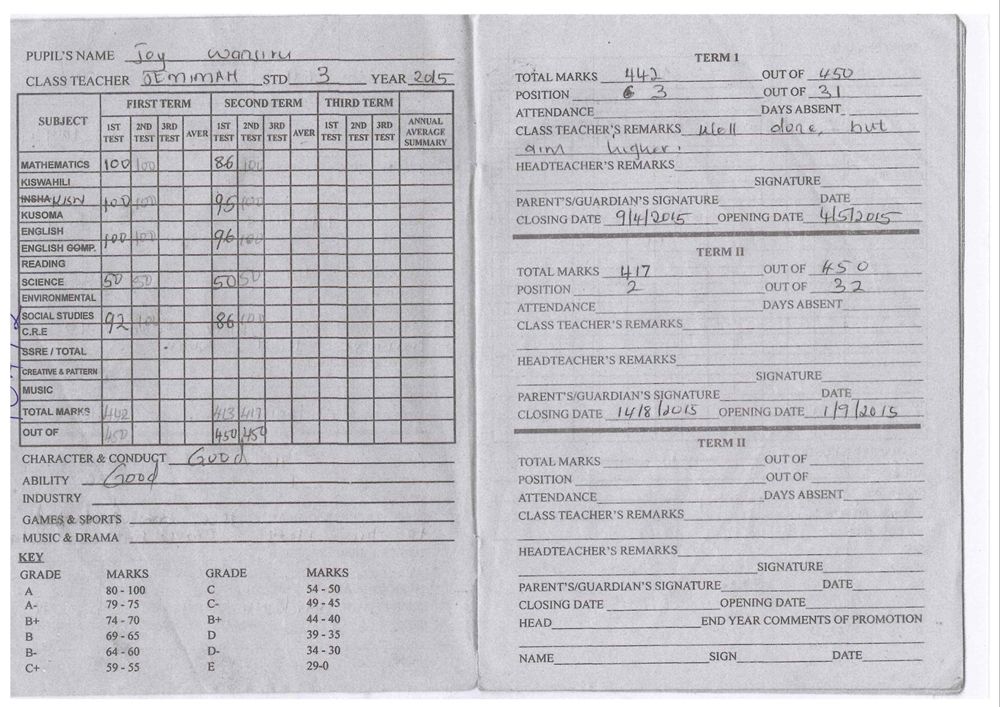 PUPIL'S NAME Joy Wanjiru
CLASS TEACHER JEMIMAH STD 3 YEAR 2015
SUBJECT FIRST TERM SECOND TERM THIRD TERM ANNUAL AVERAGE SUMMARY
1ST TEST 2ND TEST 3RD TEST AVER 1ST TEST 2ND TEST 3RD TEST AVER 1ST TEST 2ND TEST 3RD TEST
MATHEMATICS 100 100 86 100
KISWAHILI
INSHA KISW 100 100 95 100
KUSOMA
ENGLISH 100 100 96 100
ENGLISH COMP.
READING
SCIENCE 50 50 50 50
ENVIRONMENTAL
SOCIAL STUDIES 92 100 86 100
C.R.E
SSRE / TOTAL
CREATIVE & PATTERN
MUSIC
TOTAL MARKS 442 413 417
OUT OF 450 450 450
CHARACTER & CONDUCT Good
ABILITY Good
INDUSTRY
GAMES & SPORTS
MUSIC & DRAMA
KEY
GRADE MARKS GRADE MARKS
A 80 - 100 C 54 - 50
A- 79 - 75 C- 49 - 45
B+ 74 - 70 B+ 44 - 40
B 69 - 65 D 39 - 35
B- 64 - 60 D- 34 - 30
C+ 59 - 55 E 29-0
TERM 1
TOTAL MARKS 442 OUT OF 450
POSITION 3 OUT OF 31
ATTENDANCE DAYS ABSENT
CLASS TEACHER'S REMARKS Well done, but
aim higher.
HEADTEACHER'S REMARKS
SIGNATURE
PARENT'S/GUARDIAN'S SIGNATURE DATE
CLOSING DATE 9/4/2015 OPENING DATE 4/5/2015
TERM II
TOTAL MARKS 417 OUT OF 450
POSITION 2 OUT OF 32
ATTENDANCE DAYS ABSENT
CLASS TEACHER'S REMARKS
HEADTEACHER'S REMARKS
SIGNATURE
PARENT'S/GUARDIAN'S SIGNATURE DATE
CLOSING DATE 14/8/2015 OPENING DATE 1/9/2015
TERM II
TOTAL MARKS OUT OF
POSITION OUT OF
ATTENDANCE DAYS ABSENT
CLASS TEACHER'S REMARKS
HEADTEACHER'S REMARKS
SIGNATURE
PARENT'S/GUARDIAN'S SIGNATURE DATE
CLOSING DATE OPENING DATE
HEAD END YEAR COMMENTS OF PROMOTION
NAME SIGN DATE